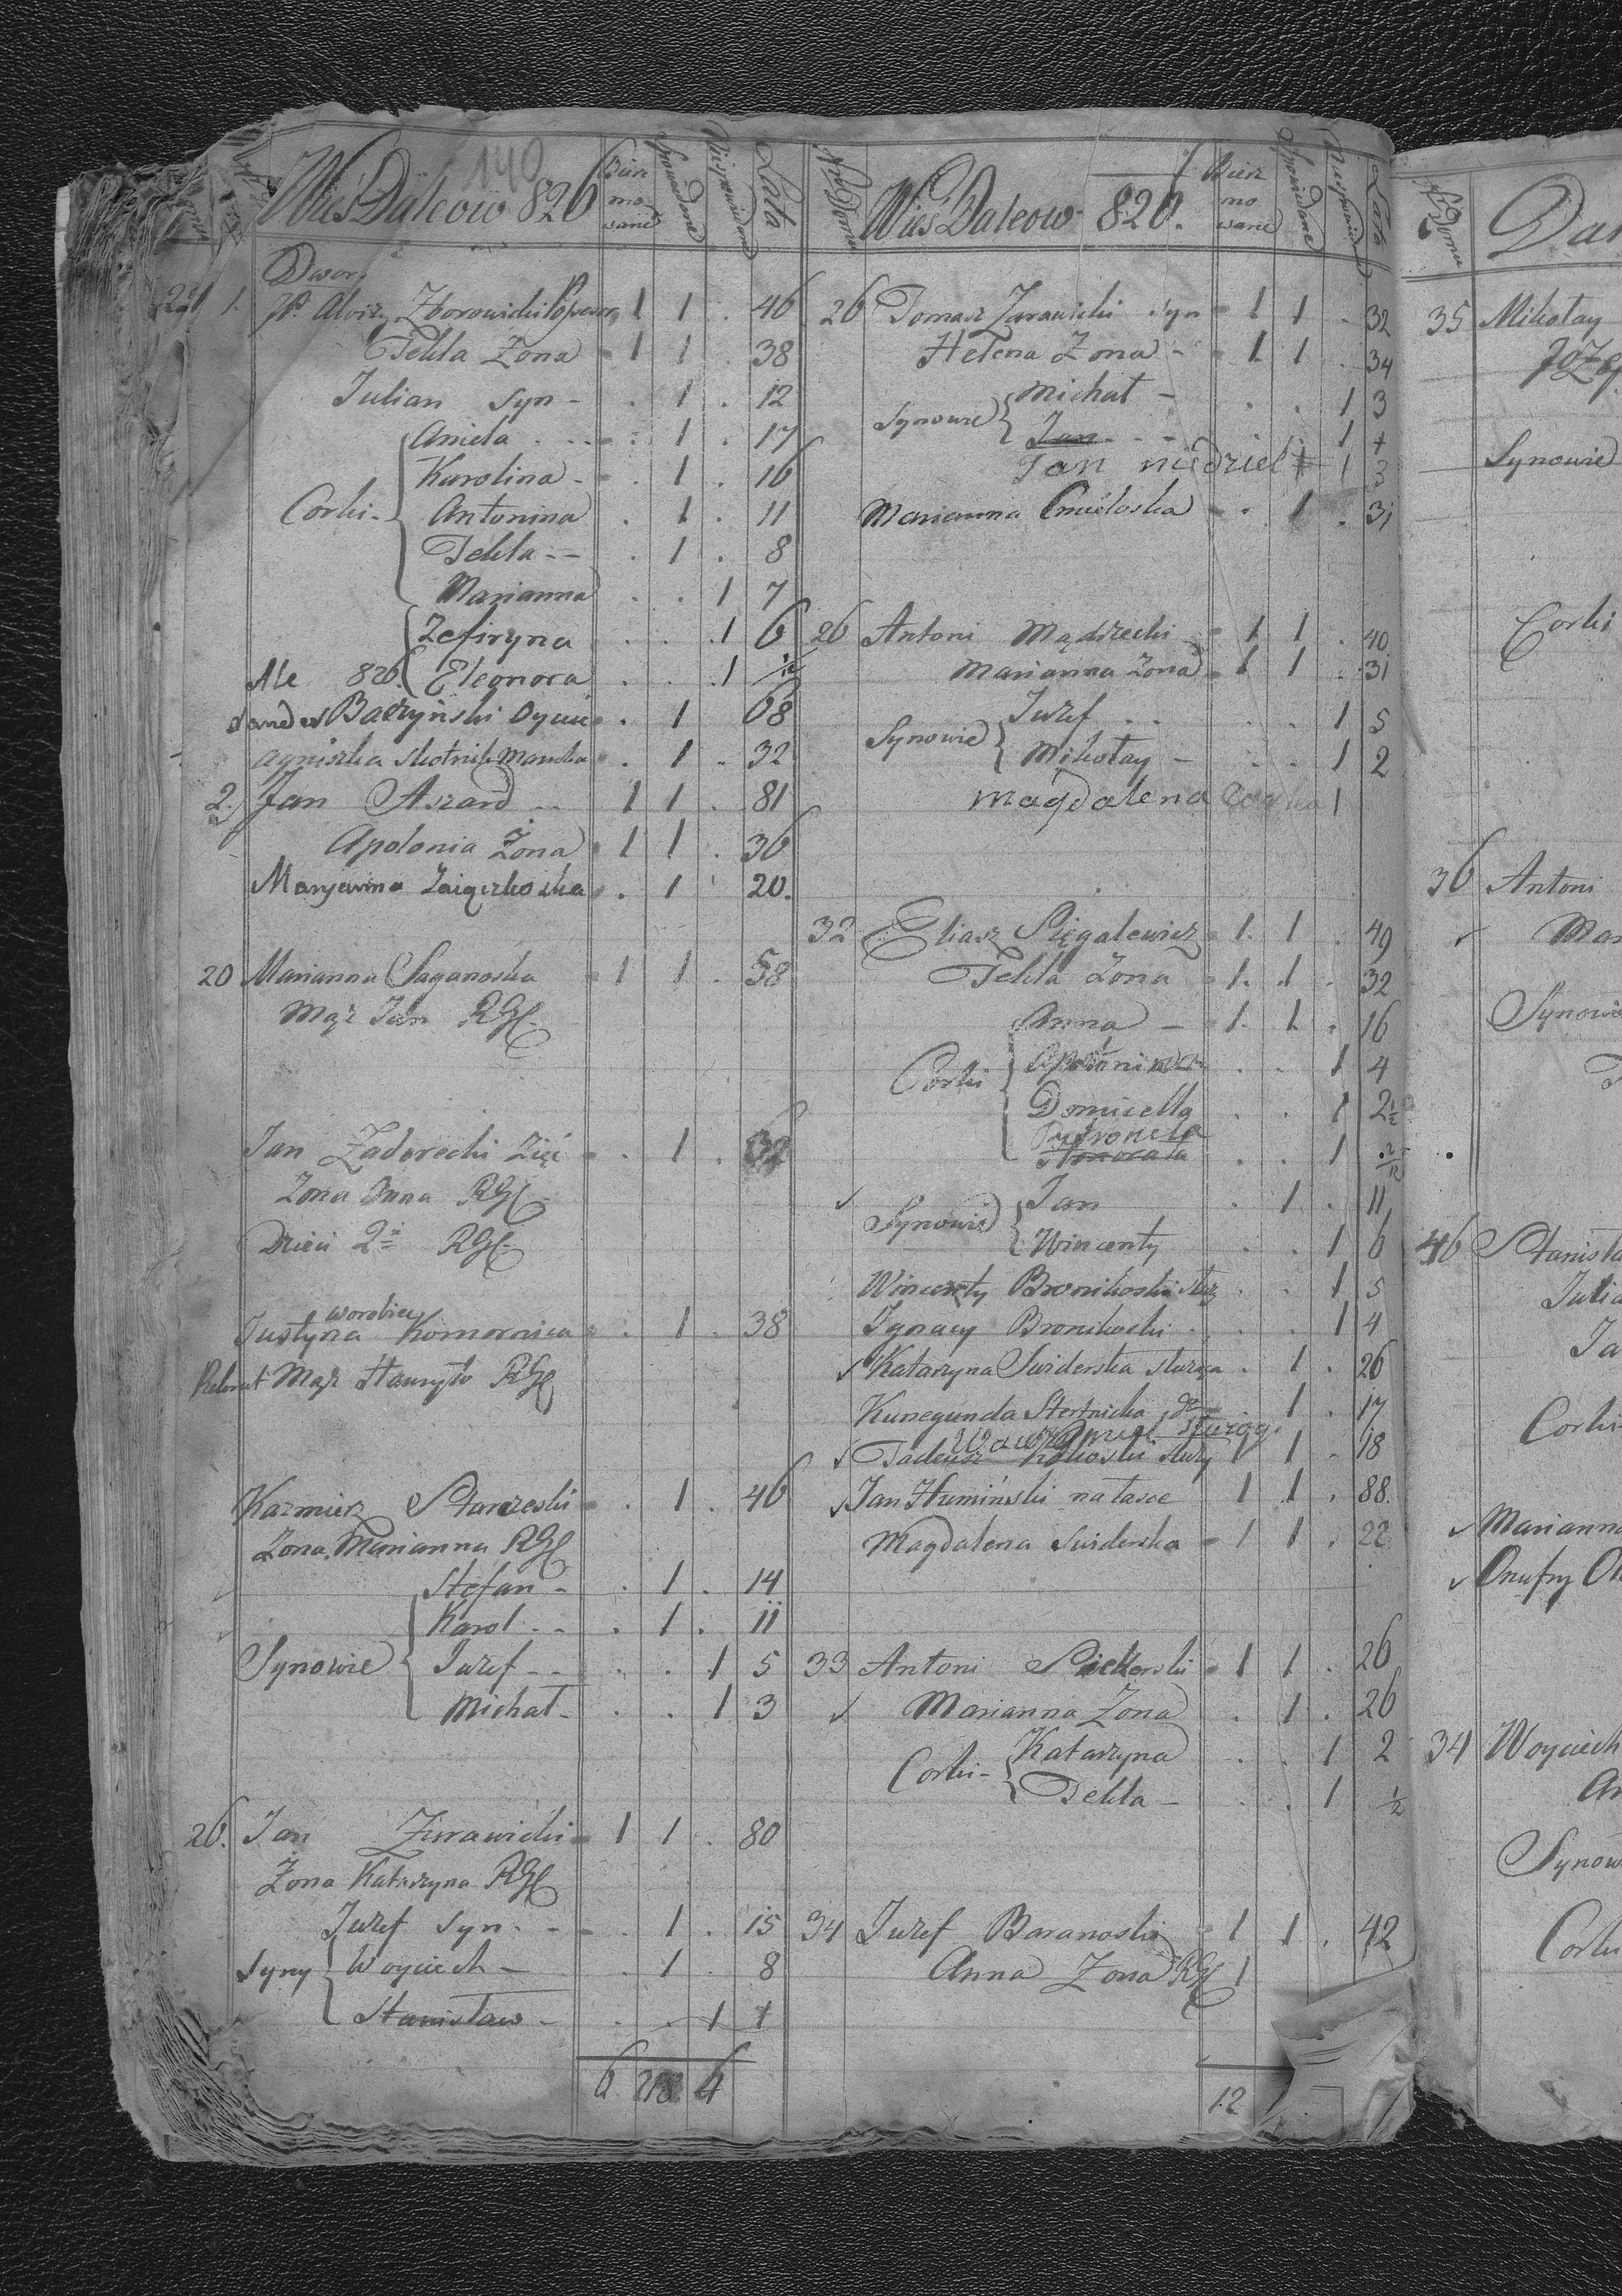 140
Wieś Daleow 826
Bierz
mo
wanie
Spowiadane
Niespowiad
Lata
Dwor
1. JP. Aloizy Zborowicki Possesor 1 1 . 46
Tekla Zona - 1 1 . 38
Julian Syn - . 1 . 12
Aniela . . 1 . 17
Karolina - . 1 . 16
Corki - Antonina . 1 . 11
Tekla - - . 1 . 8
Marianna . . 1 7
Zefiryna . . 1 6
Ale 826. Eleonora . . 1
Baczyński Oyciec . 1 68
Agniszka Skotnick Mamka . 1 . 32
2. Jan Aszard 1 1 . 81
Apolonia Zona 1 1 . 36
Maryanna Zaiączkoska . 1 20.
20 Marianna Saganoska 1 1 . 58
Mąż Jan RGf
Jan Zadorecki Zięć . 1 .
Zona Anna RGf
Dzieci 2ie RGf
worobiec
Justyna Komornica . 1 . 38
Rekrut Mąż Hawryło RGf
Kazmierz Starzeski . 1 . 46
Zona Marianna RGf
Stefan - . 1 . 14
Karol - - . 1 . 11
Synowie Juzef - - . . 1 5
Michał - . . 1 3
26. Jan Zurawicki 1 1 . 80
Zona Katarzyna RGf
Juzef Syn . - . 1 . 15
Syny Woyciech - . 1 . 8
Stanisław - . . 1 +
6 218 6
Nro Domu
Wieś Daleow 826.
Bierz
mo
wanie
Spowiadane
Niespowiad
Lata
26 Tomasz Zurawicki Syn 1 1 . 32
Helena Zona - 1 1 . 34
Synowie Michał - . . 1 3
Jan - - . . 1 +
Jan niedziel + 1 3
Marianna Cmieloska . 1 . 31
26 Antoni Mądrzecki 1 1 . 40
Marianna Zona 1 1 . 31
Juzef . . 1 5
Synowie Mikołay - . . 1 2
Magdalena Corka 1
32 Eliasz Pięgalewicz 1. 1 . 49
Tekla Zona 1. 1 . 32
Anna - 1. 1 . 16
Corki . . 1 4
Domicella . . 1 2½
Petronela
Honorata . . 1 2/12
Jan . 1 . 11
Synowie Wincenty . . 1 6
Wincenty Bronikoski służ . . 1 5
Ignacy Bronikoski . . 1 4
Katarzyna Swiderska służąca . 1 . 26
Kunegunda Stertnicka do 1 . 17
Tadeusz Kokoski służy 1 . 18
Jan Humiński na łasce 1 1 . 88.
Magdalena Swiderska 1 1 . 22
33 Antoni Piekorski 1 1 . 26
Marianna Zona . 1 . 26
Katarzyna . . 1 2
Corki - Tekla - . . 1 ½
34 Juzef Baranoski 1 1 . 42
Anna Zona RGf 1
12
No Domu
Dal
35 Mikołay
Synowie
Corki
36 Antoni
Mar
Synowie
46 Stanisła
Julia
Ja
Corki
Marianna
Onufry
34 Woyciech
An
Synow
Corki